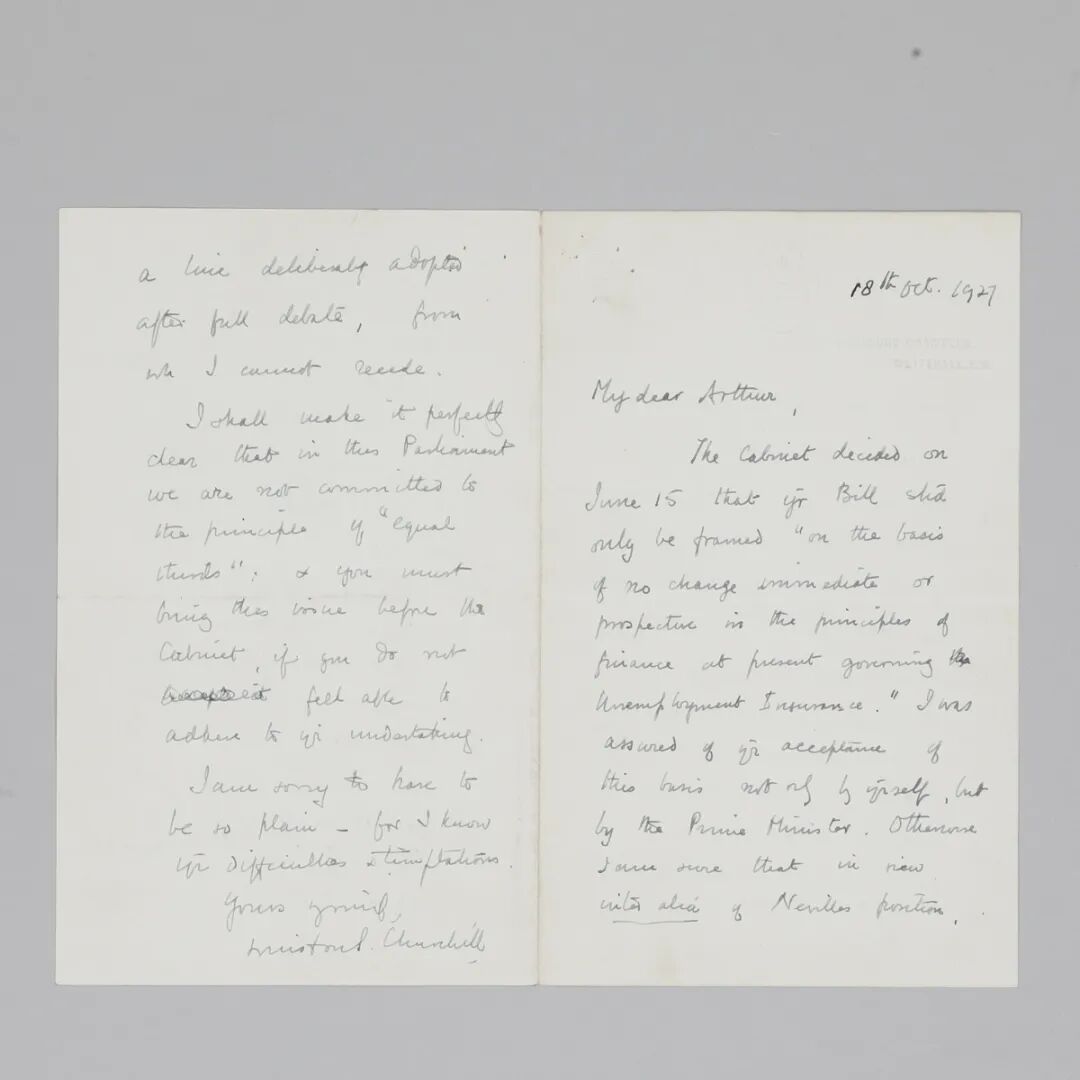 18th Oct. 1927
My dear Arthur,
The Cabinet decided on
June 15 that yr Bill shd
only be framed "on the basis
of no change immediate or
prospective in the principles of
finance at present governing the
Unemployment Insurance." I was
assured of yr acceptance of
this basis not only by yrself, but
by the Prime Minister. Otherwise
I am sure that in view
inter alia of Nevilles position,
a line deliberately adopted
after full debate, from
wh I cannot recede.
I shall make it perfectly
clear that in this Parliament
we are not committed to
the principle of "equal
thirds"; & you must
bring this issue before the
Cabinet, if you do not
feel able to
adhere to yr undertaking.
I am sorry to have to
be so plain - for I know
yr difficulties & temptations.
Yours
Winston S. Churchill